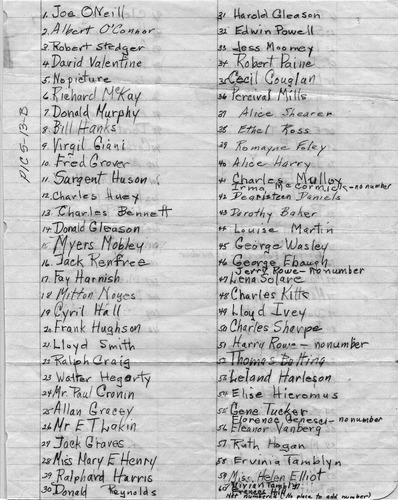 PIC 5-13-B
1. Joe ONeill
2. Albert O'Connor
3. Robert Stedger
4. David Valentine
5. No picture
6. Richard McKay
7. Donald Murphy
8. Bill Hanks
9. Virgil Giani
10. Fred Grover
11. Sargent Huson
12. Charles Huey
13 Charles Bennett
14 Donald Gleason
15 Myers Mobley
16 Jack Renfree
17 Fay Harnish
18 Milton Noyes
19 Cyril Hall
20 Frank Hughson
21 Lloyd Smith
22 Ralph Craig
23 Walter Hegarty
24 Mr. Paul Cronin
25 Allan Gracey
26 Mr E T Lakin
27 Jack Graves
28 Miss Mary E Henry
29 Ralphard Harris
30 Donald Reynolds
31 Harold Gleason
32 Edwin Powell
33 Jess Mooney
34 Robert Paine
35 Cecil Couglan
36 Percival Mills
37 Alice Shearer
38 Ethel Ross
39 Romayne Foley
40 Alice Harry
41 Charles Mulloy
Irma McCormick - no number
42 Dearisteen Daniels
43 Dorothy Baker
44 Louise Martin
45 George Wasley
46 George Ebaugh
Jerry Rowe - no number
47 Lena Solare
48 Charles Kitts
49 Lloyd Ivey
50 Charles Sharpe
51 Harry Rowe - no number
52 Thomas Botting
53 Leland Harleson
54 Elise Hieromus
55 Gene Tucker
Florence Genesel - no number
56 Eleanor Vanberg
57 Ruth Hogan
58 Ervinia Tamblyn
59 Miss. Helen Elliot
60 Vivian Tamblyn
Not Numbered (No place to add number)